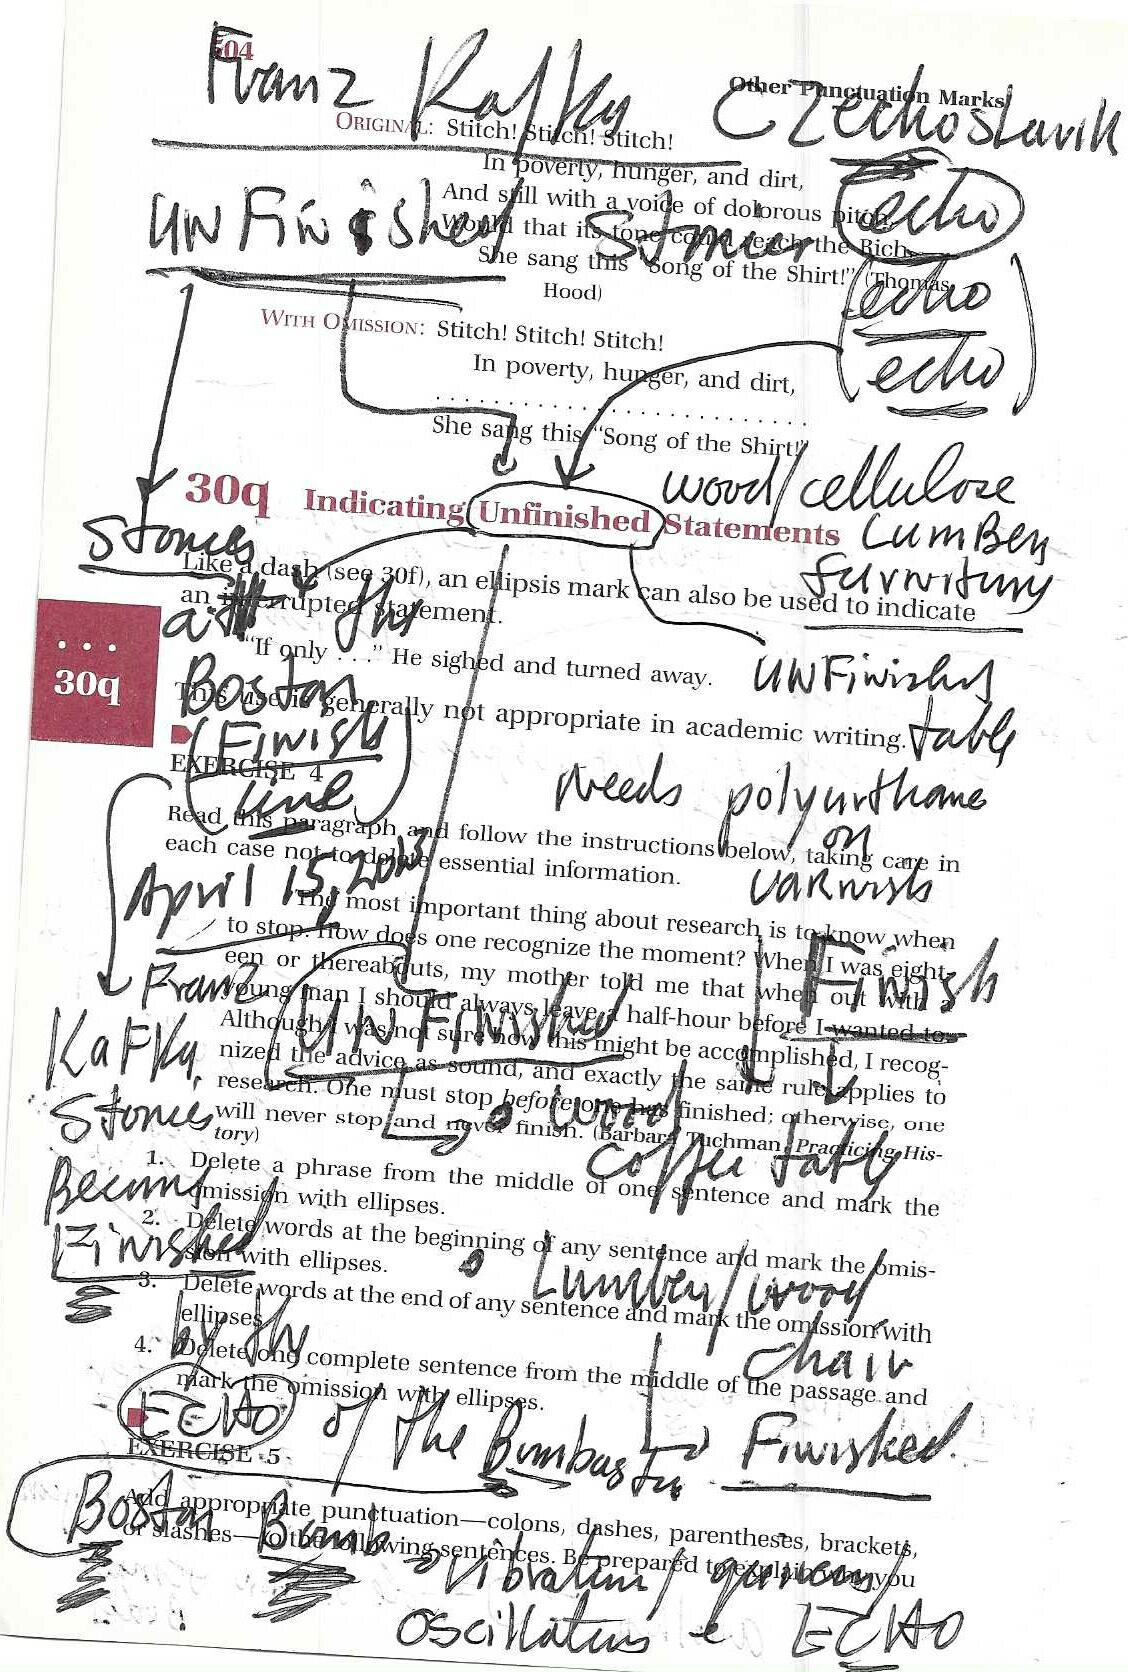 504
Franz Kafka Czechoslavik
Other Punctuation Marks
ORIGINAL: Stitch! Stitch! Stitch!
In poverty, hunger, and dirt,
And still with a voice of dolorous pitch,
Would that its tone could reach the Rich,
She sang this "Song of the Shirt!" (Thomas
Hood)
UNFinished stories echo
(echo
echo)
WITH OMISSION: Stitch! Stitch! Stitch!
In poverty, hunger, and dirt,
. . . . . . . . . . . . . . . . . . . . . . . . . .
She sang this "Song of the Shirt!"
wood/cellulose
30q Indicating Unfinished Statements
Lumber
furniture
Stories
Like a dash (see 30f), an ellipsis mark can also be used to indicate
an interrupted statement.
at the
"If only . . ." He sighed and turned away.
. . .
30q
Boston
UNFinished
This use is generally not appropriate in academic writing.
table
(Finish
line)
EXERCISE 4
needs polyurthane
on
varnish
Read this paragraph and follow the instructions below, taking care in
each case not to delete essential information.
April 15, 2013
The most important thing about research is to know when
to stop. How does one recognize the moment? When I was eight-
een or thereabouts, my mother told me that when out with a
young man I should always leave a half-hour before I wanted to.
Although I was not sure how this might be accomplished, I recog-
nized the advice as sound, and exactly the same rule applies to
research. One must stop before one has finished; otherwise, one
will never stop and never finish. (Barbara Tuchman, Practicing His-
tory)
Finish
Franz
Kafka
UNFinished
Stories
wood
coffee table
Become
Finished
1. Delete a phrase from the middle of one sentence and mark the
omission with ellipses.
2. Delete words at the beginning of any sentence and mark the omis-
sion with ellipses.
3. Delete words at the end of any sentence and mark the omission with
ellipses.
4. Delete one complete sentence from the middle of the passage and
mark the omission with ellipses.
Lumber/wood
chair
by the
ECHO of the Bombastic
Finished.
EXERCISE 5
Add appropriate punctuation—colons, dashes, parentheses, brackets,
or slashes—to the following sentences. Be prepared to explain why you
Boston Bomb
oscillations ECHO